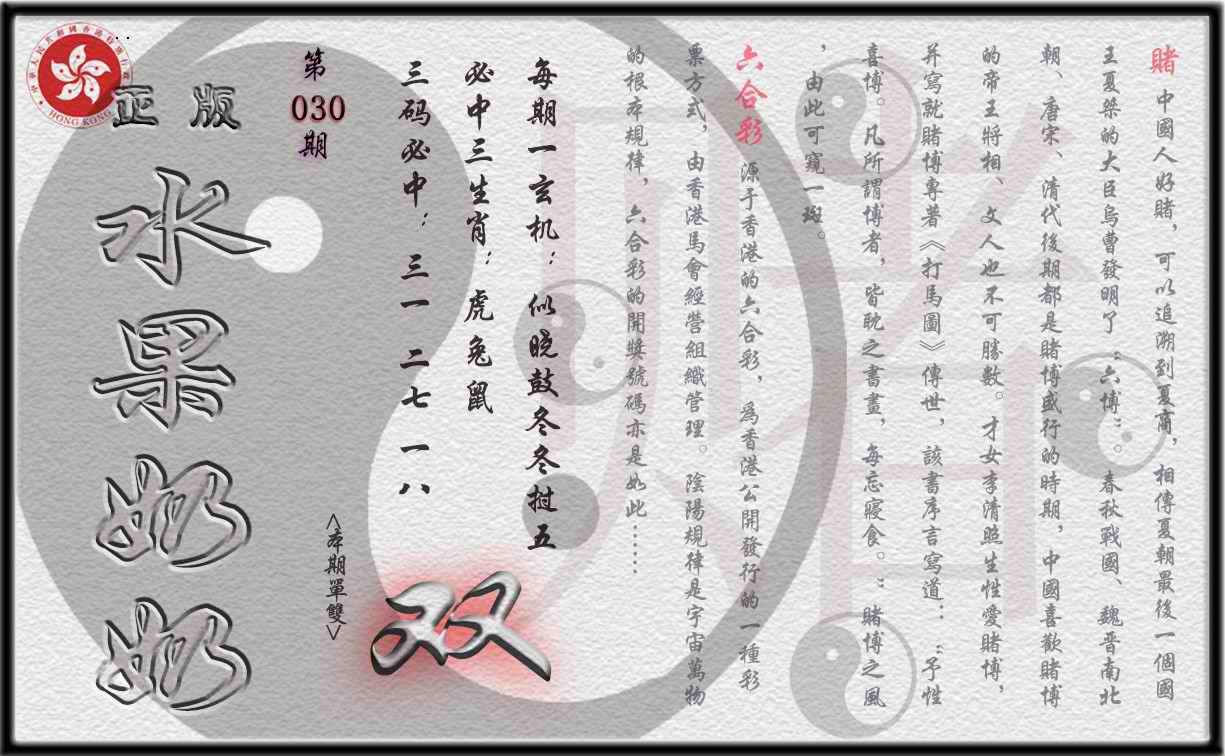 賭 中國人好賭，可以追溯到夏商，相傳夏朝最後一個國
王夏桀的大臣烏曹發明了“六博”。春秋戰國、魏晋南北
朝、唐宋、清代後期都是賭博盛行的時期，中國喜歡賭博
的帝王將相、文人也不可勝數。才女李清照生性愛賭博，
并寫就賭博專著《打馬圖》傳世，該書序言寫道：“予性
喜博。凡所謂博者，皆耽之書畫，每忘寢食。”賭博之風
，由此可窺一斑。
六合彩 源于香港的六合彩，爲香港公開發行的一種彩
票方式，由香港馬會經營組織管理。陰陽規律是宇宙萬物
的根本規律，六合彩的開獎號碼亦是如此……
每期一玄机：似晓鼓冬冬挝五
必中三生肖：虎兔鼠
三码必中：三一 二七 一八
<本期單雙>
双
第
030
期
正版
水果奶奶
中華人民共和國香港特別行政區
HONG KONG